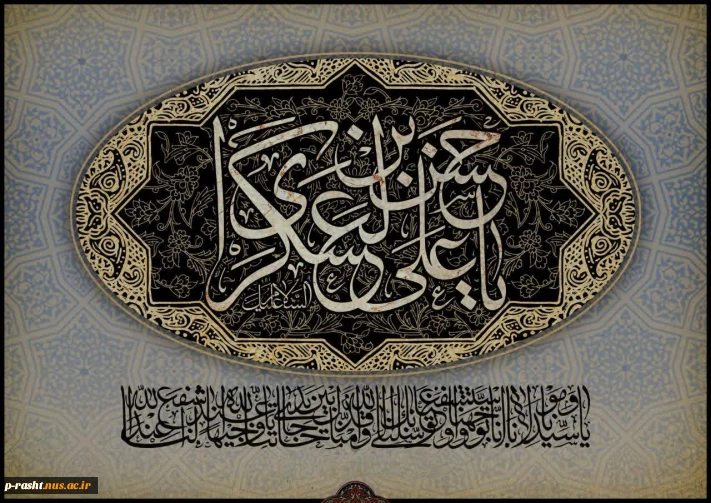 یا حسن بن علی العسکری
السلام علیک
یا سیدنا و مولانا انا توجهنا و استشفعنا و توسلنا بک الی الله و قدمناک بین یدی حاجاتنا یا وجیها عند الله اشفع لنا عند الله
p-rasht.nus.ac.ir